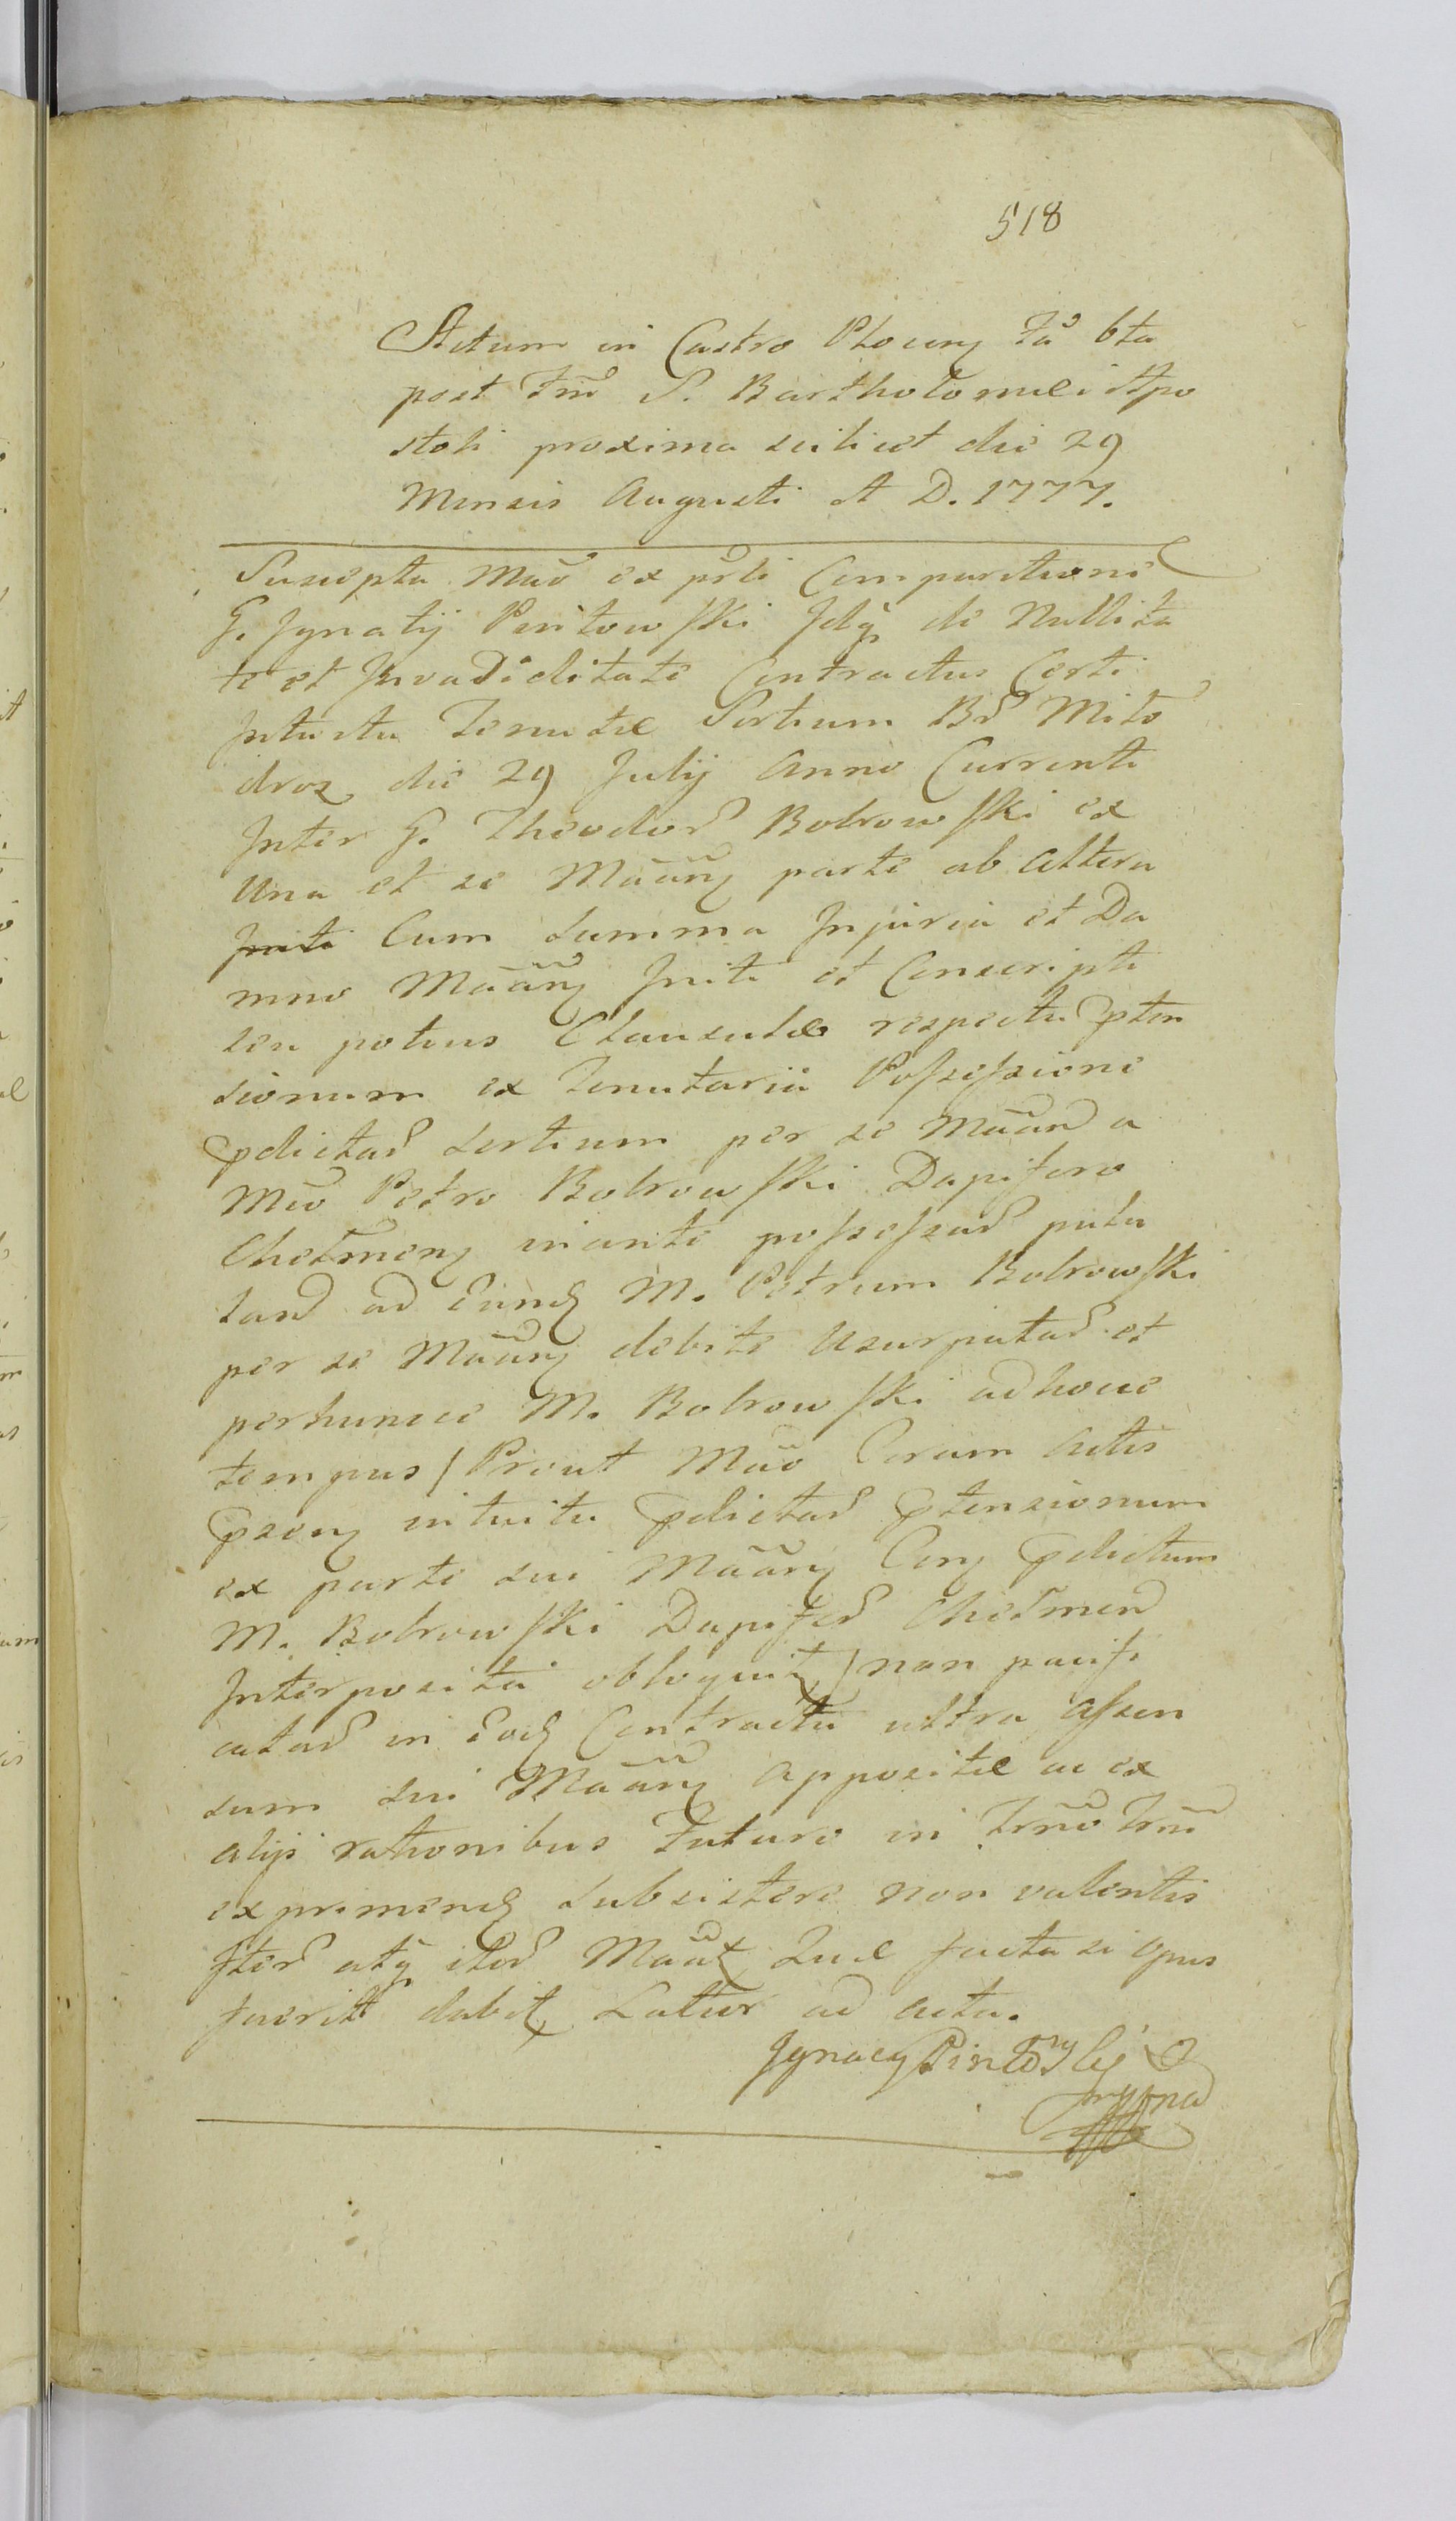 518
Actum in Castro Plocen̄ Fa 6ta
post Fm̃ S. Bartholomæi Apo
stoli proxima scilicet die 29
Mensis Augusti A D. 1777.
Suscepta Mañ ex pr̃li Comparitione
G. Ignatij Pintowski Idq̃ de Nullita
te et Invadiditate Contractus Certi
Intuitu Tenutæ Sortium Br̃ Miło
droz die 29 Julij Anno Currenti
Inter G. Theodor̃ Bobrowski ex
Una et se Mãañ parte ab altera
Initi Cum Summa Injuria et Da
mno Mãañ Initi et Conscripti
seu potius Clausulæ respectu p̃ten
sionum ex Tenutaria Possessione
p̃dictar̃ Sortium per se Mãan̄ a
Mco Petro Bobrowski Dapifero
Chełmen̄ inante possessar̃ puta
tar̃ ad Eund̃ M. Petrum Bobrowski
per se Mãañ debite Usurpatar̃ et
perhuncce M. Bobrowski adhocce
tempus / Prout Mão Coram Actis
p̃sen̄ intuitu p̃dictar̃ p̃tensionum
ex parte sui Mãañ Con̄ p̃dictum
M. Bobrowski Dapifer̃ Chełmen̄
Interposita obloquit̃ / non pacifi
catar̃ in Eod̃ Contractu ultra assen
sum sui Mãañ appositæ ac ex
alijs rationibus Futuro in Trño Trñi
exprimend̃ subsistere non valentis
Iter̃ atq̃ iter̃ Mãat̃ Quæ facta si opus
fuerit dabit̃ Latior ad acta.
Ignacy Pintowski